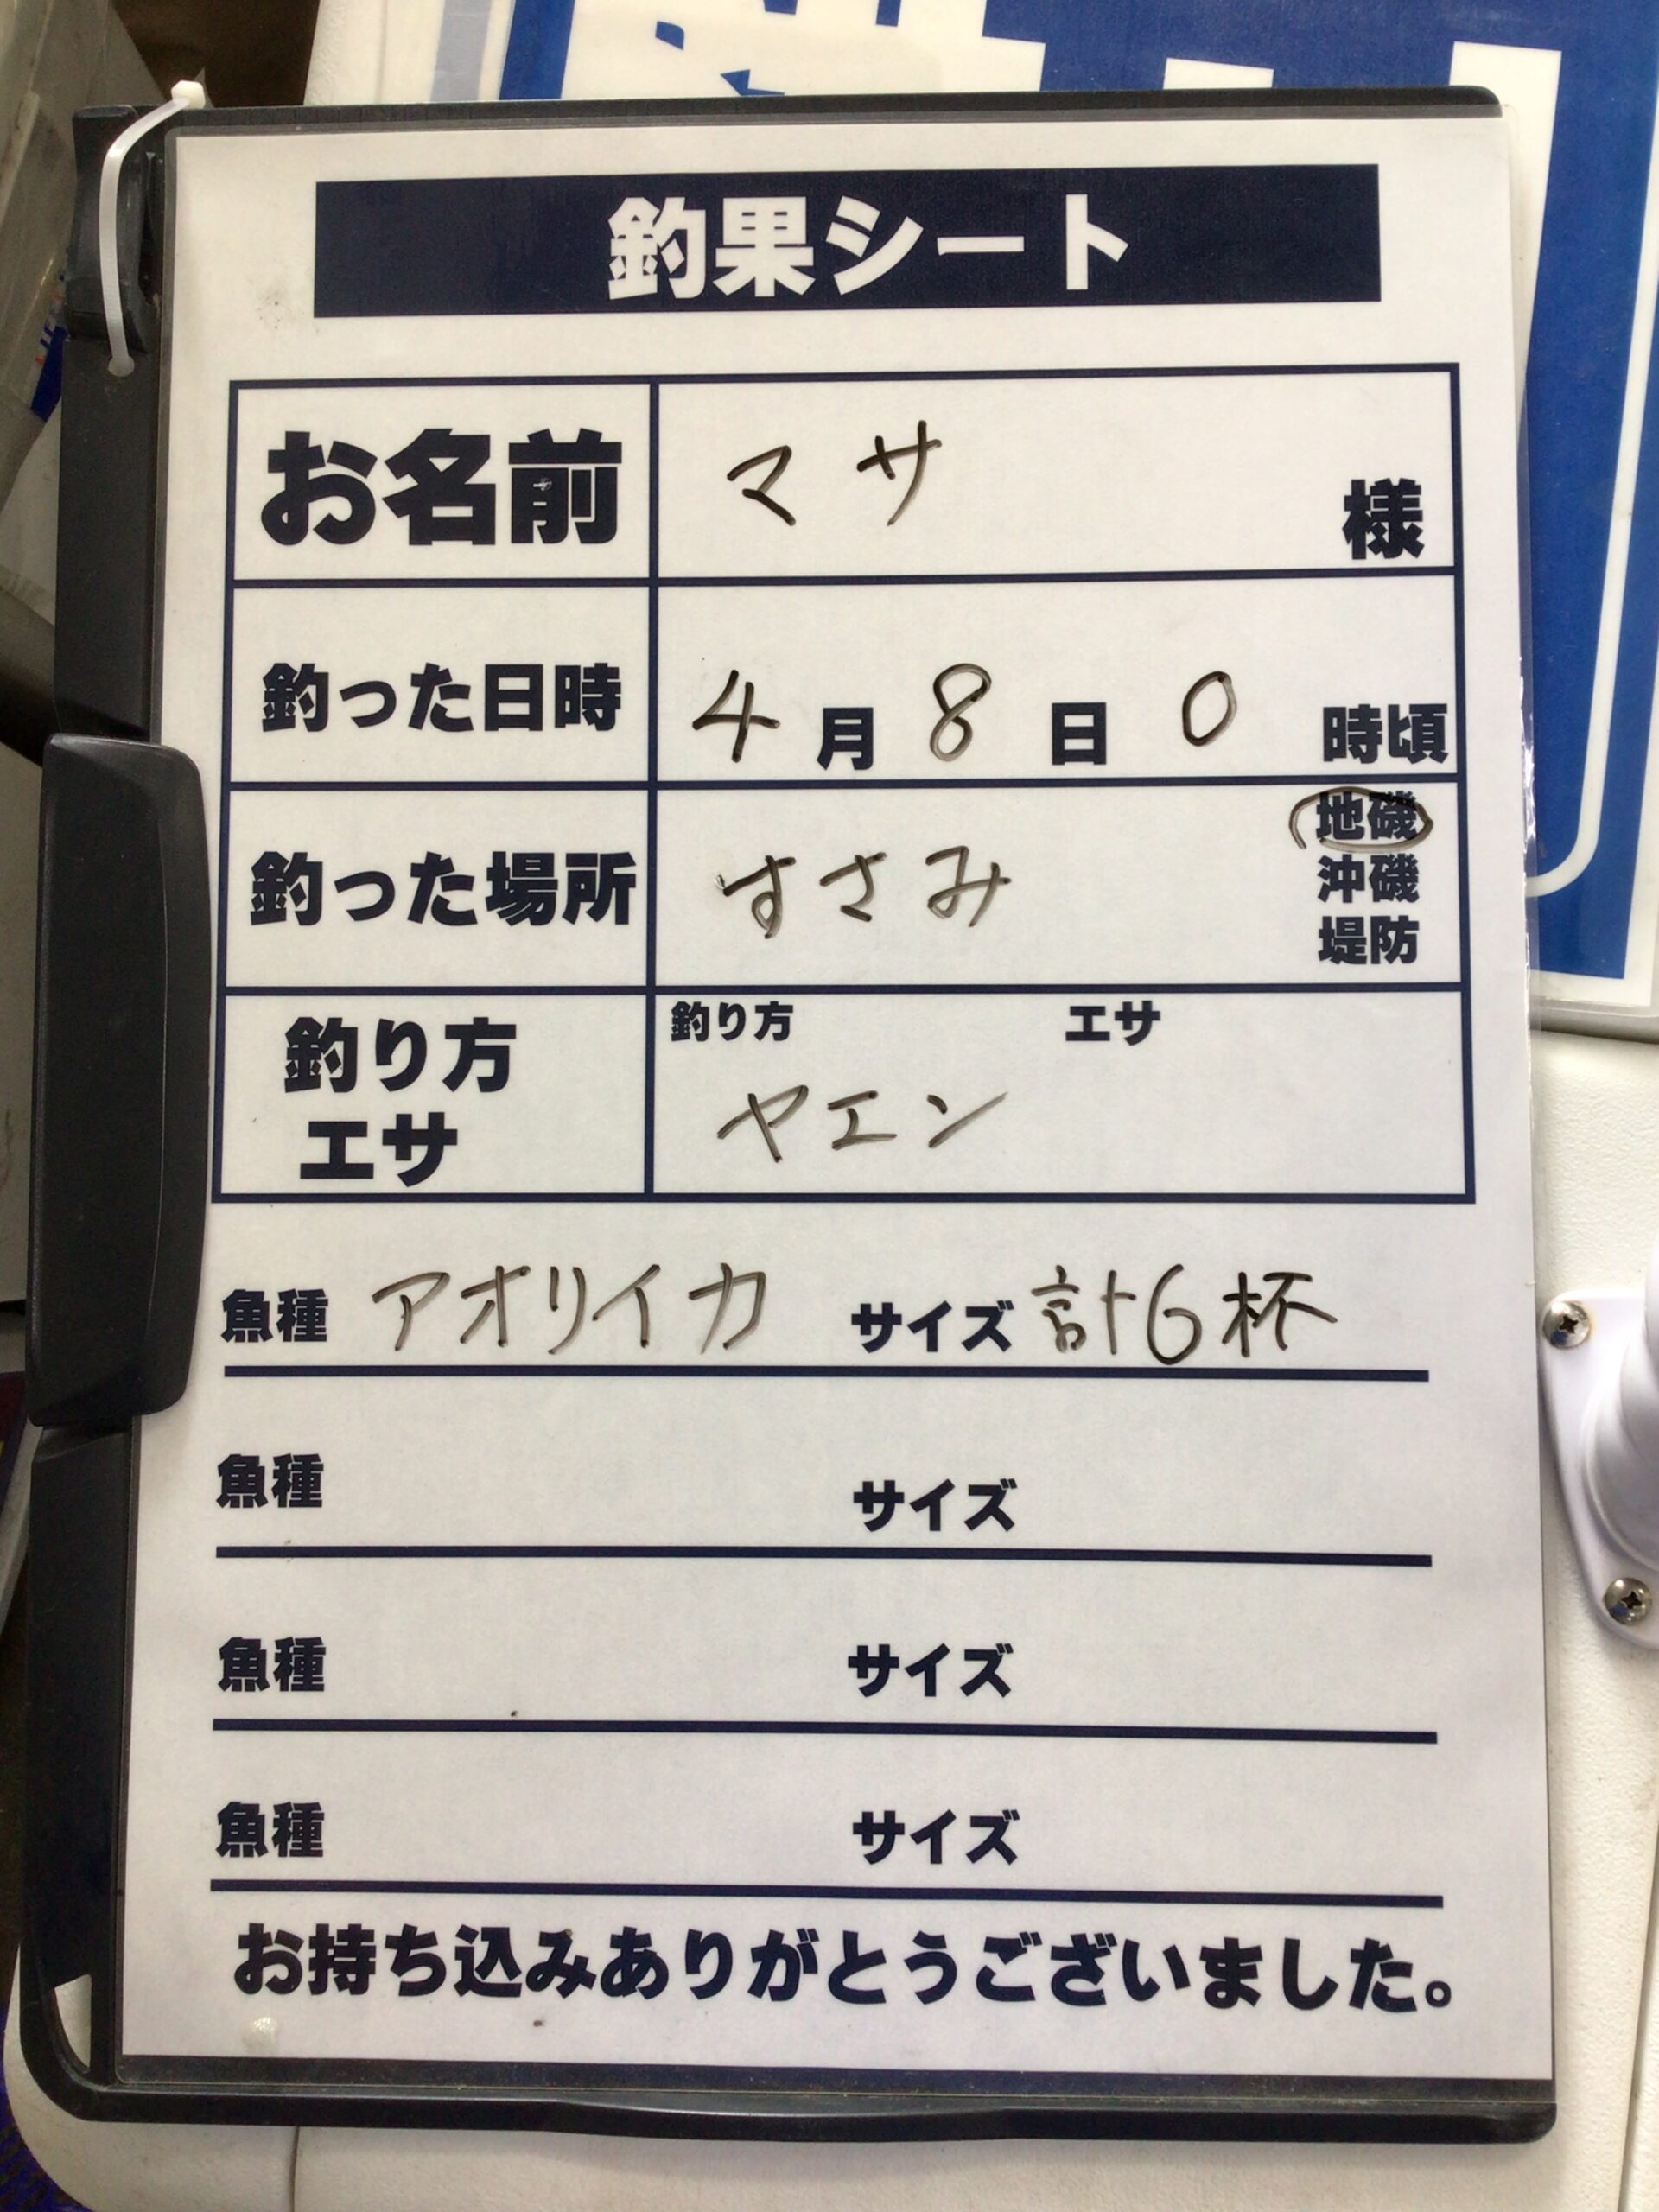 釣果シート
お名前 マサ 様
釣った日時 4月8日0時頃
釣った場所 すさみ 地磯
沖磯
堤防
釣り方 エサ
釣り方
エサ
ヤエン
魚種 アオリイカ サイズ 計6杯
魚種 サイズ
魚種 サイズ
魚種 サイズ
お持ち込みありがとうございました。